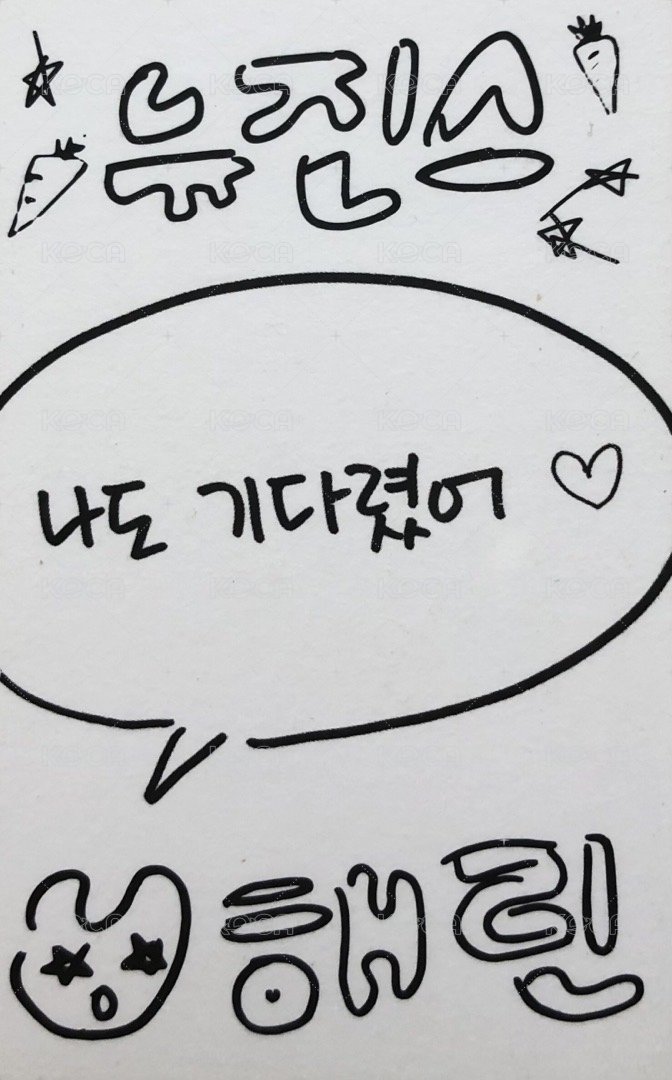 뉴진스
나도 기다렸어
해린